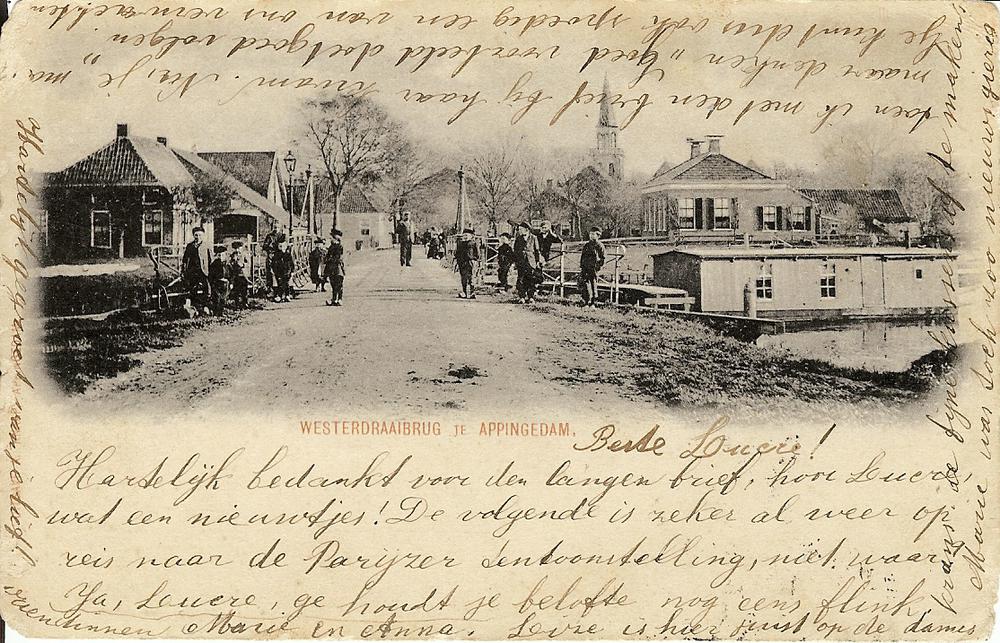 WESTERDRAAIBRUG TE APPINGEDAM.
Beste Loucre!
Hartelijk bedankt voor den langen brief, hoor Loucre,
wat een nieuwtjes! De volgende is zeker al weer op
reis naar de Parijzer tentoonstelling, niet waar,
Ja, Loucre, ge houdt je belofte nog eens flink.
Je kunt dus ook spoedig een van ons verwachten
maar denken "Goed voorbeeld doet goed volgen.
toen ik met den brief bij haar kwam. Nu, je
Marie was toch zoo nieuwsgierig
Hartelijk gegroet van je liefh.
vriendinnen Marie en Anna. is hier juist op de dames
krans de fijne af te maken.